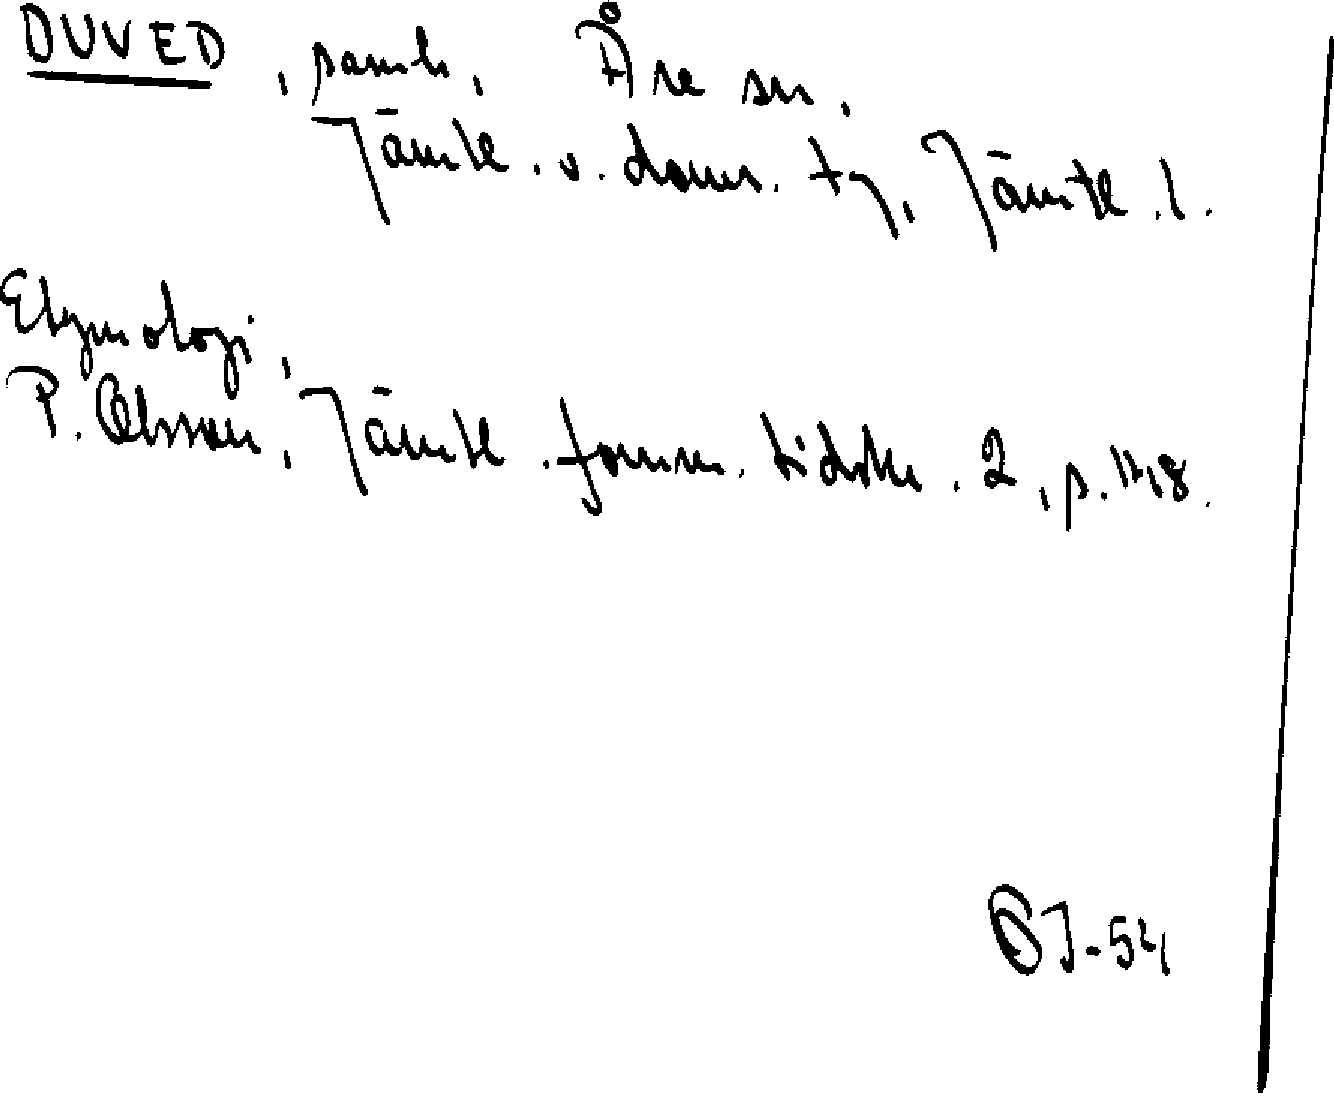 DUVED, samh, Åre sn.
Jämtl. v. doms. tg, Jämtl. l.
Etymologi,
P. Olsson, Jämtl. fornm. tidskr. 2, p. 148.